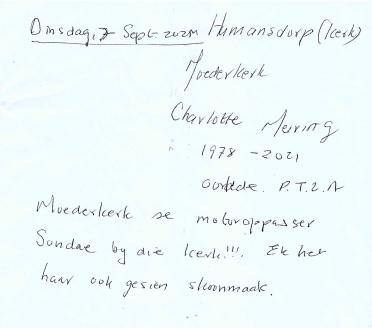 Dinsdag, 7 Sept 2021 Humansdorp (kerk)
Moederkerk
Charlotte Meiring
1978 - 2021
P.T.2.N
Moederkerk se motoroppasser
Sondae by die kerk!!!. Ek het
haar ook gesien skoonmaak.